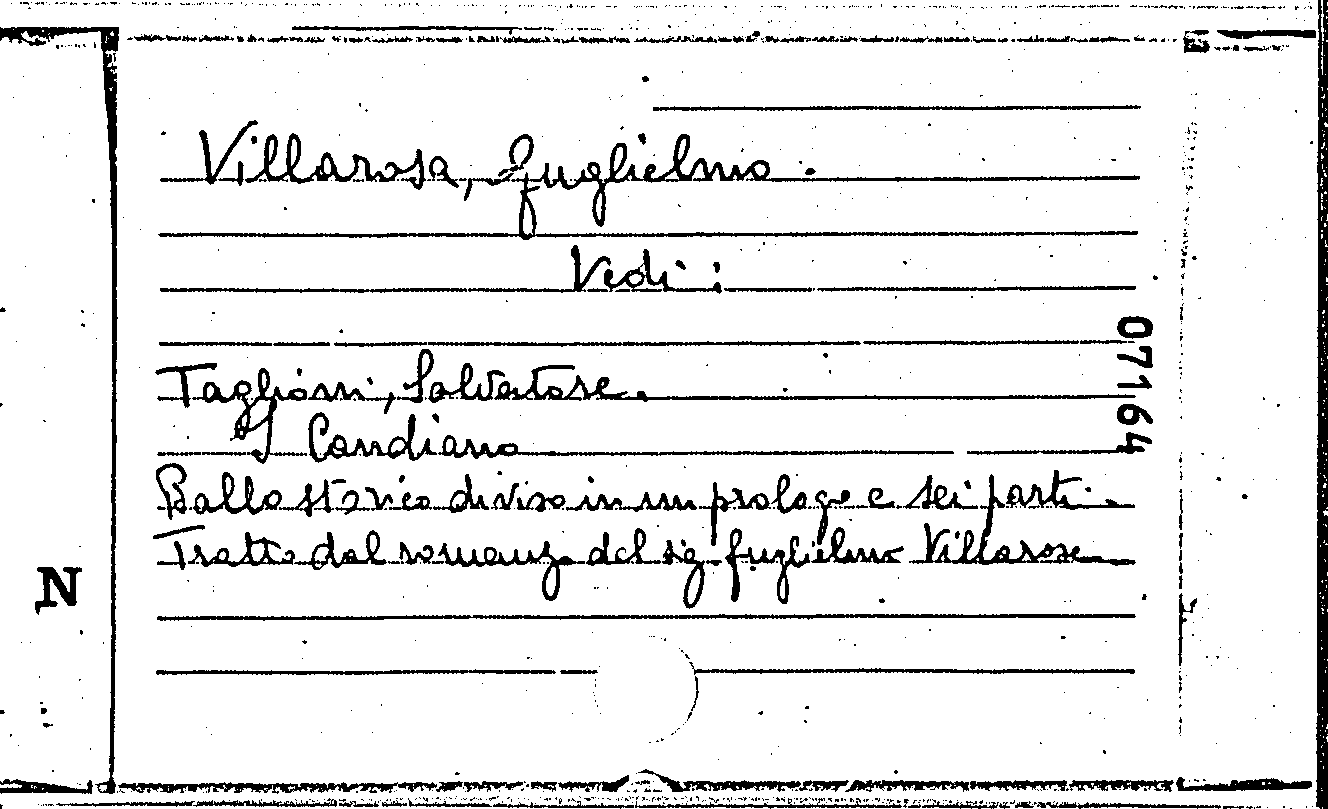 Villarosa, Guglielmo.
Vedi:
071164
Taglioni, Salvatore.
I Candiano
Ballo storico diviso in un prologo e sei parti.
Tratto dal romanzo del sig. Guglielmo Villarosa
N